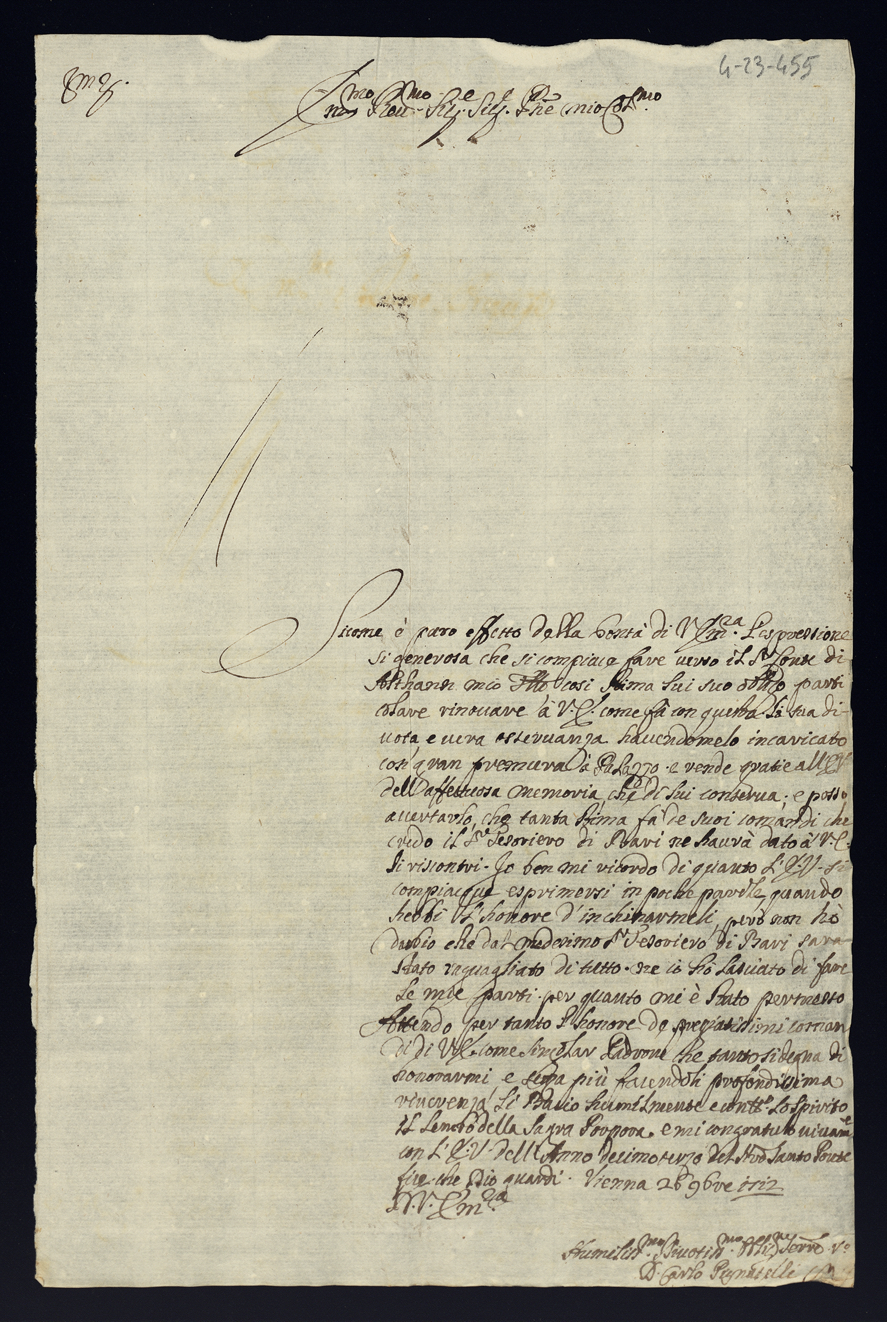 4-23-455
Em.
Em.mo Reu.mo Sig.e Sig.e P.ne mio Col.mo
Sicome è puro effetto della bontà di V. Em.za L'espressione
si generosa che si compiace fare verso il S.r Conte di
Althann mio così stima lui suo parti
colare rinouare à V.E. come fà con questa la sua di-
uota e uera osseruanza hauendomelo incaricato
con gran premura à Palazzo e rende gratie all'E.V.
dell'affettuosa memoria, che di lui conserua; e posso
accertarlo, che tanta stima fà de suoi comandi che
credo il S.r Tesoriero di Bari ne haurà dato à V.E.
li riscontri. Io ben mi ricordo di quanto l'E.V. si
compiacque esprimersi in poche parole, quando
hebbi l'honore d'inchinarmeli, però non hò
dubio che dal medesimo S.r Tesoriero di Bari sarà
stato raguagliato di tutto. ne io hò lasciato di fare
le mie parti per quanto mi è stato permesso
Attendo per tanto l'honore de pregiatissimi coman
di di V.E. come singolar Padrone che tanto si degna di
honorarmi e senza più facendoli profondissima
riuerenza li Bacio humilmente e con tt.o lo spirito
il lembo della Sagra Porpora, e mi congratulo uiuam.e
con l'E.V. dell'Anno decimoterzo del Nro Santo Ponte
fice che Dio guardi. Vienna 26 9bre 1712
D.V. Em.za
Humiliss.mo Diuotiss.mo Serre v.o
D. Carlo Pignatelli